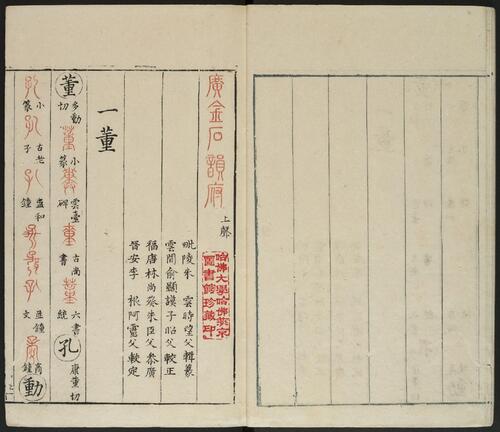 廣金石韻府 上聲
哈佛大學哈佛燕京
圖書館珍藏印
毗陵朱 雲時望父輯篆
雲間俞顯謨子昭父較正
福唐林尚葵朱臣父參廣
晉安李 根阿靈父較定
一董
董 多動切 董 小篆 雲臺碑 董 古尚書 董 六書統 孔 康董切
孔 小篆 孔 古老子 孔 盄和鐘 鐘文 商鐘 動